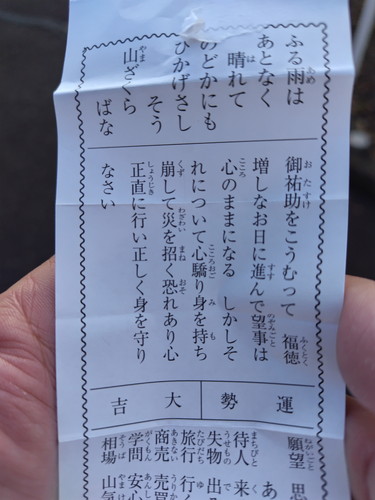 ふる雨は
あとなく
晴れて
のどかにも
ひかげさし
そう
山ざくら
ばな
御祐助をこうむって 福徳
増しなお日に進んで望事は
心のままになる しかしそ
れについて心驕り身を持ち
崩して災を招く恐れあり心
正直に行い正しく身を守り
なさい
運勢 大吉
願望 思
あ
待人 来
失物 出
旅行 行く
商売 売買
学問 安心
相場 山気